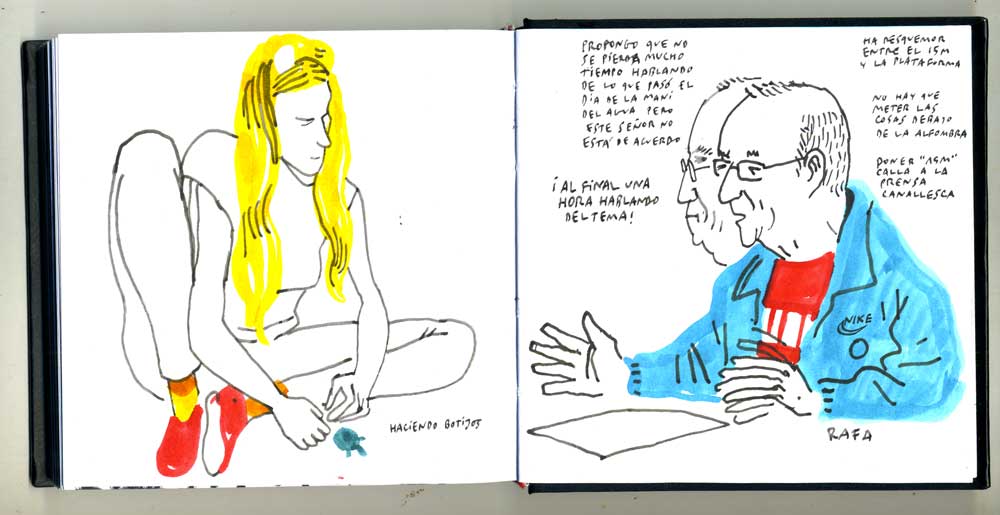 HACIENDO BOTIJOS
PROPONGO QUE NO
SE PIERDA MUCHO
TIEMPO HABLANDO
DE LO QUE PASÓ EL
DÍA DE LA MANI
DEL AGUA PERO
ESTE SEÑOR NO
ESTÁ DE ACUERDO
¡AL FINAL UNA
HORA HABLANDO
DEL TEMA!
HA RESQUEMOR
ENTRE EL 15M
Y LA PLATAFORMA
NO HAY QUE
METER LAS
COSAS DEBAJO
DE LA ALFOMBRA
PONER "15M"
CALLA A LA
PRENSA
CANALLESCA
NIKE
RAFA